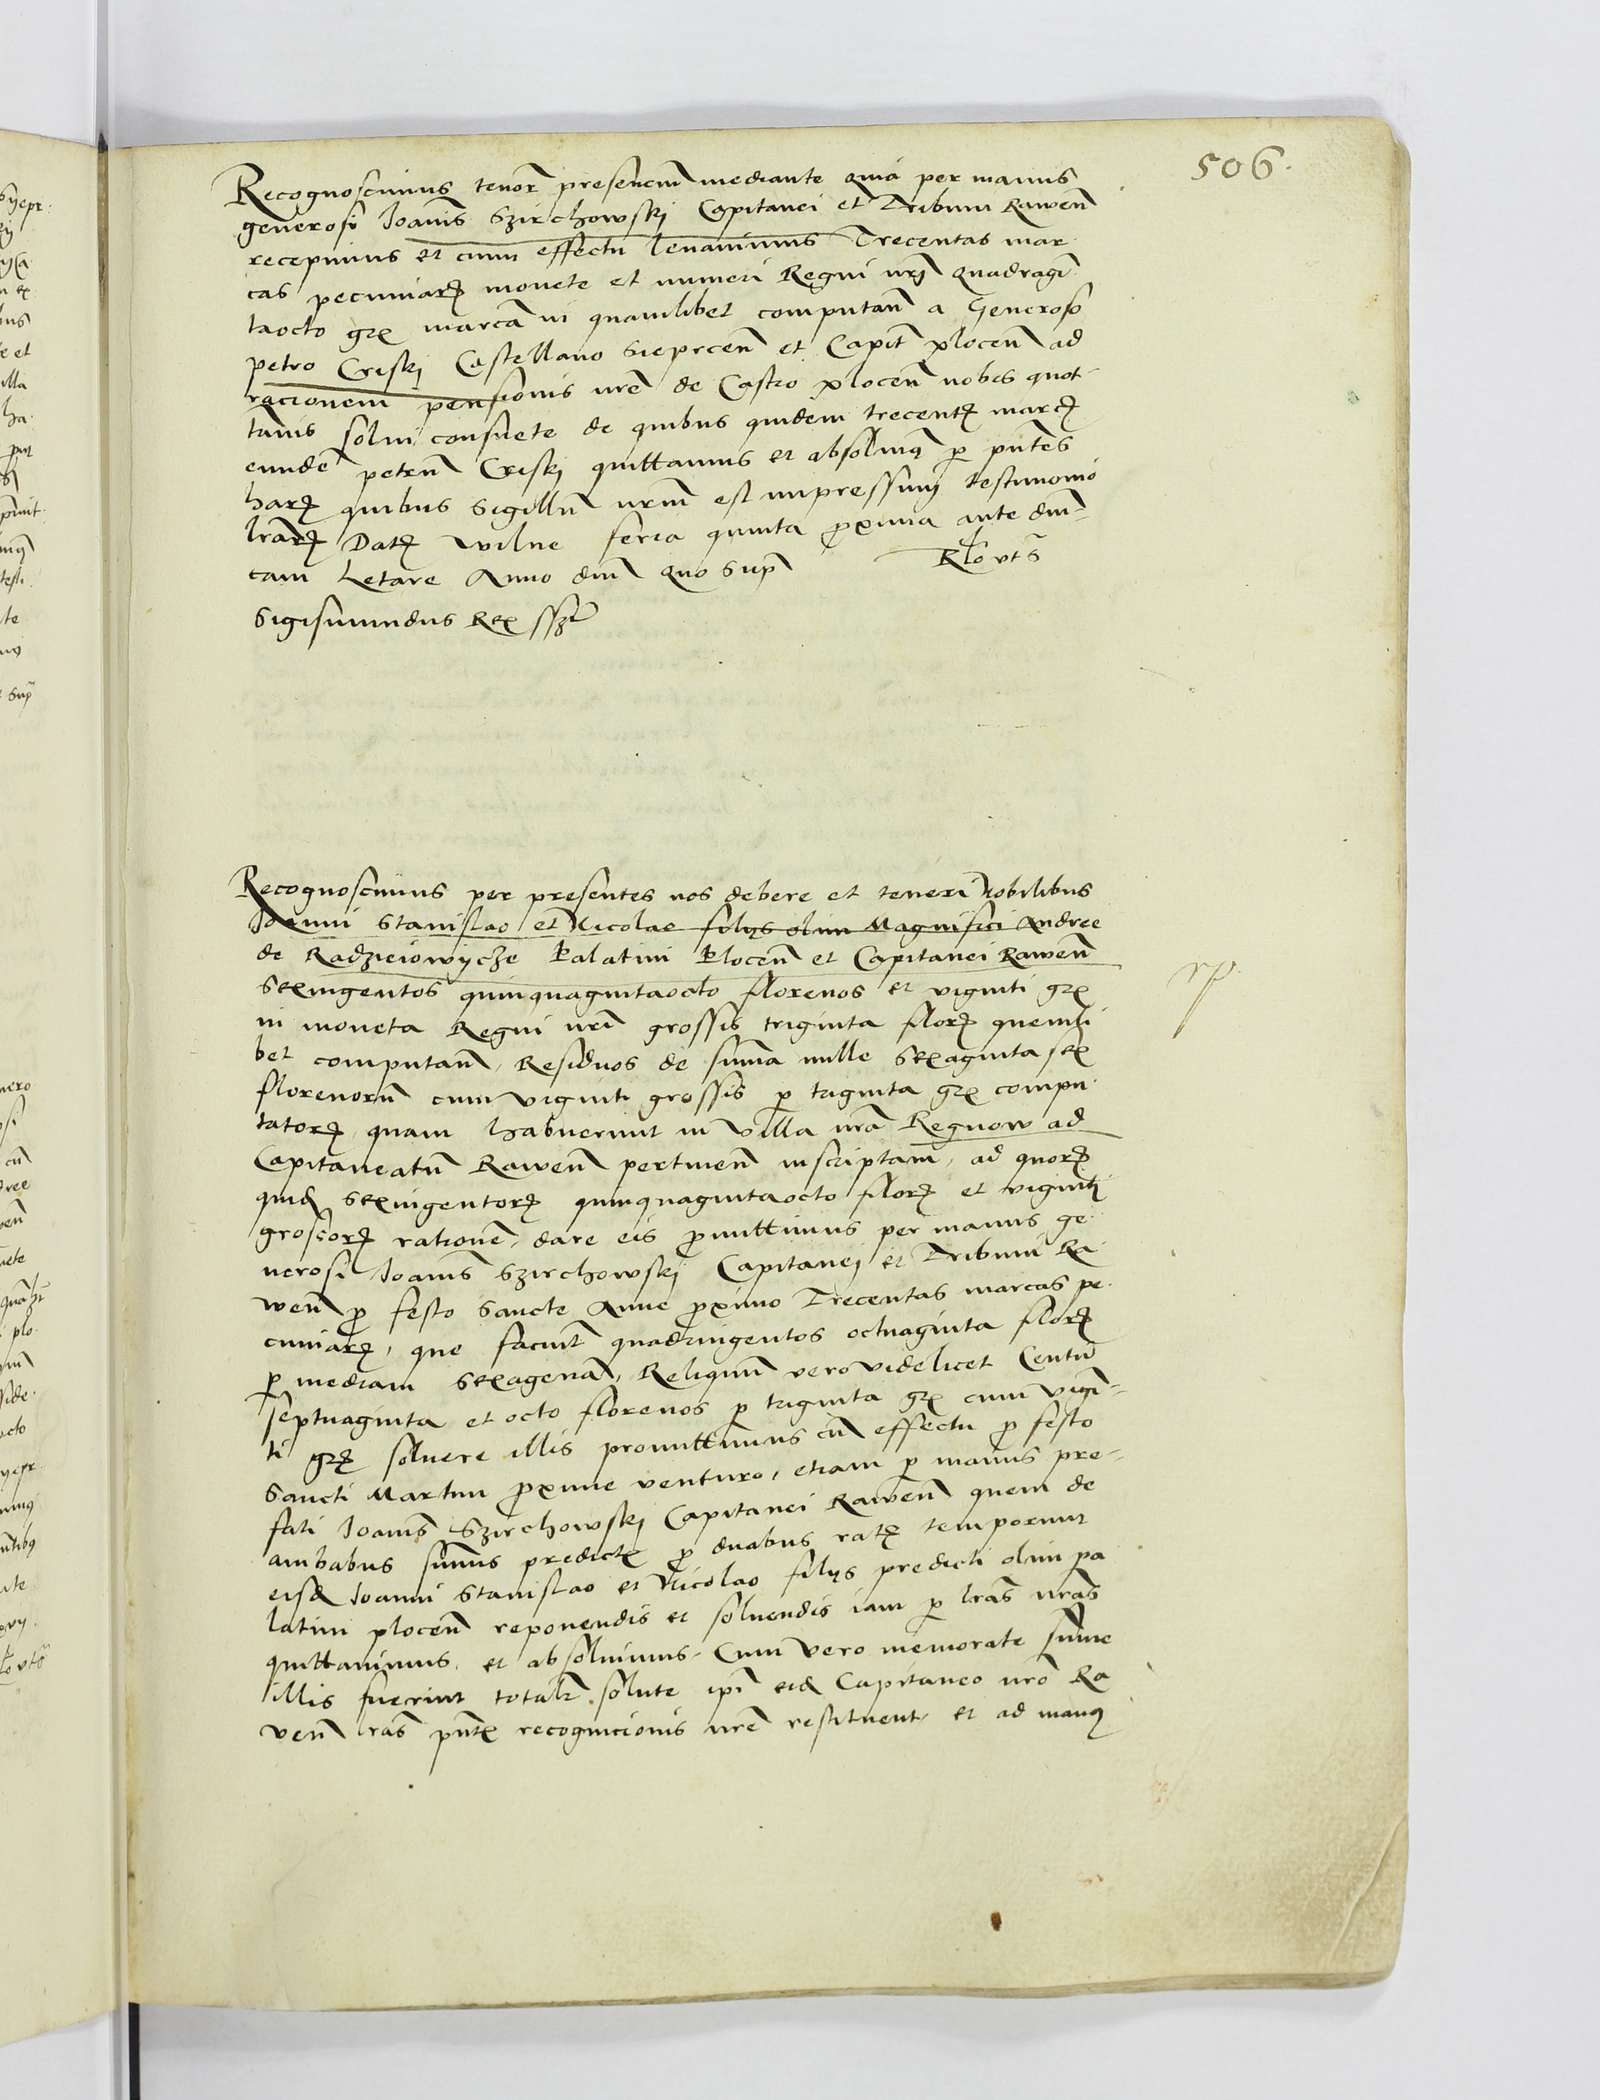 506.
Recognoscimus tenor̃ presencm̃ mediante quia per manus
generosi Ioanis̃ Szirchowskj Capitanei et Tribuni Raweñ
recepimus et cum effectu levavimus Trecentas mar
cas pecuniarꝫ monete et numeri Regni nr̃j quadragĩ
taocto grꝭ marcã in quamlibet computañ a Generoso
petro Criskj Castellano Sieprceñ et Capiť ploceñ ad
racionem pensionis nrẽ de Castro ploceñ nobis quot-
tanis solui consuete de quibus quidem trecentꝭ marcꝭ
eundẽ petrũ Criskj quittamus et absoluimꝰ ꝑ pñtes
harꝫ quibus sigillũ nrm̃ est impressum testimonio
lrãrꝫ Datꝭ wilne feria quinta proxima ante dñi-
cam Letare Anno dñi quo sup̃
Rło vtS̃
Sigismundus Rex sszt
Recognoscimus per presentes nos debere et teneri Nobilibus
Ioanni Stanislao et Nicolao filijs olim Magnifici Andree
de Radzieiowycze Palatini Ploceñ et Capitanei Raweñ
Sexingentos quinquagintaocto florenos et viginti grꝭ
in moneta Regni nrĩ grossis triginta florꝫ quemli
bet computañ, Residuos de sum̃a mille sexaginta sex
florenorũ cum viginti grossis ꝑ triginta grꝭ compu-
tatorꝫ quam habuerunt in villa nrã Regnow ad
Capitaneatũ Raweñ pertineñ inscriptam, ad quorꝫ
quid̃ Sexingentorꝫ quinquagintaocto florꝫ et viginti
grossorꝫ rationẽ, dare eis promittimus per manus ge-
nerosi Ioanis̃ Szirchowskj Capitanej et Tribuni Ra-
weñ pro festo Sancte Anne proximo Trecentas marcas pe-
cuniarꝫ, que faciũt quadringentos octuaginta florꝫ
ꝑ mediam sexagenã, Reliquũ vero videlicet Centũ
septuaginta et octo florenos ꝑ triginta grꝭ cum vigĩ-
ti grꝭ soluere illis promittimus cũ effectu pro festo
Sancti Martini proxime venturo, etiam ꝑ manus pre-
fati Ioanis̃ Szirchowskj Capitanei Raweñ quem de
ambabus sum̃is predictꝭ pro duabus ratꝭ temporum
eisd̃ Ioanni Stanislao et Nicolao filijs predicti olim pa
latini ploceñ reponendis et soluendis iam ꝑ lrãs nrãs
quittauimus, et absoluimus. Cum vero memorate sum̃e
illis fuerint totalr̃ solute ip̃i eid̃ Capitaneo nrõ Ra
veñ lrãs pñtꝭ recognicionis nrẽ restituent, et ad manꝰ